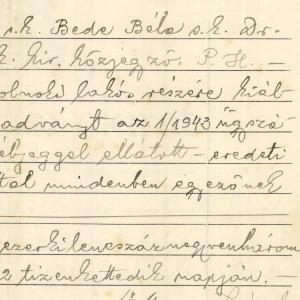 s.k. Bede Béla s.k. Dr.
k. kir. közjegyző. P. H. —
olnoki lakós részére kiál
advány az 1/1943 ügyszá
élyeggel ellátott - eredeti
tal mindenben egyezőnek
ezerkilencszáznegyvenhárom
2 tizenkettedik napján. —